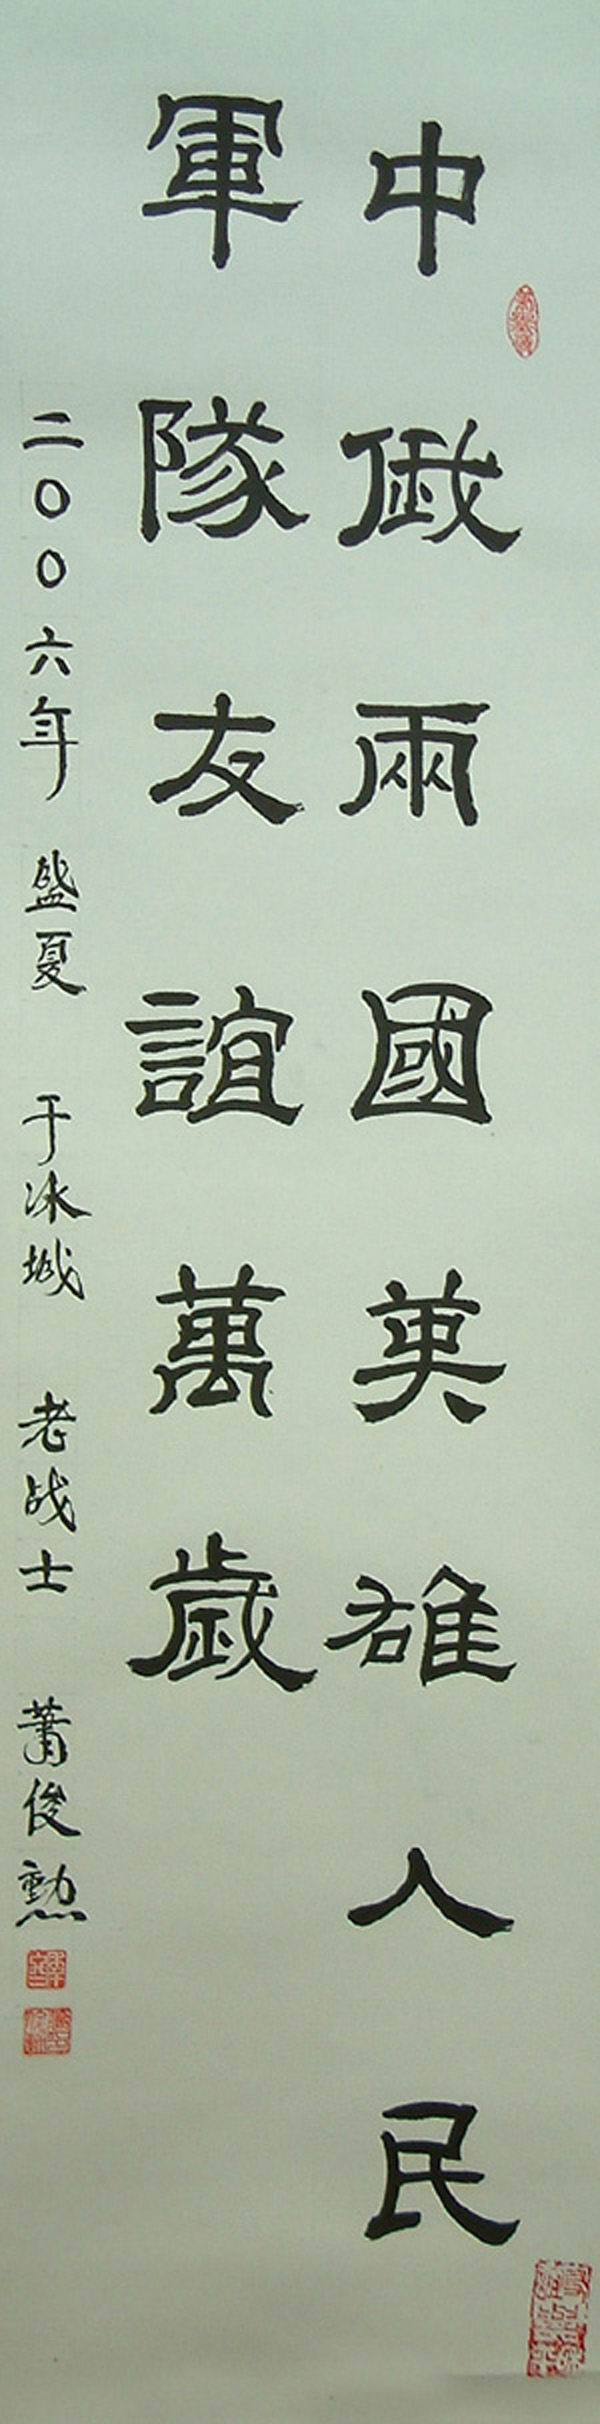 中俄兩國英雄人民
軍隊友誼萬歲
二〇〇六年 盛夏 于冰城 老战士 蕭俊勲